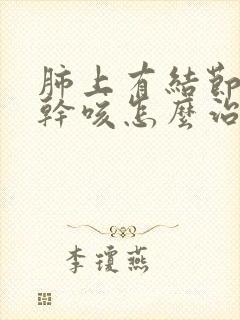 肺上有結節
幹咳怎麼治
李瓊燕